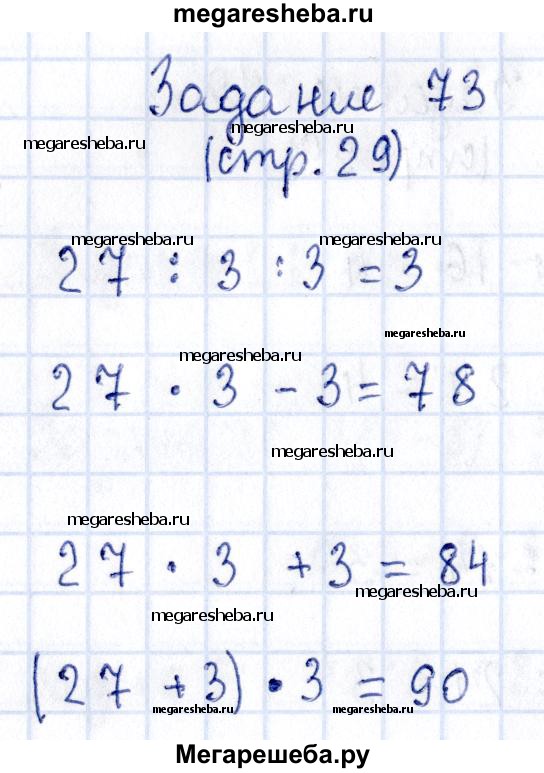 megaresheba.ru
Задание 73
megaresheba.ru megaresheba.ru
(стр. 29)
megaresheba.ru megaresheba.ru
27 : 3 : 3 = 3
megaresheba.ru
megaresheba.ru
27 · 3 - 3 = 78
megaresheba.ru
megaresheba.ru
27 · 3 + 3 = 84
megaresheba.ru
megaresheba.ru
(27 + 3) · 3 = 90
megaresheba.ru megaresheba.ru
Мегарешеба.ру